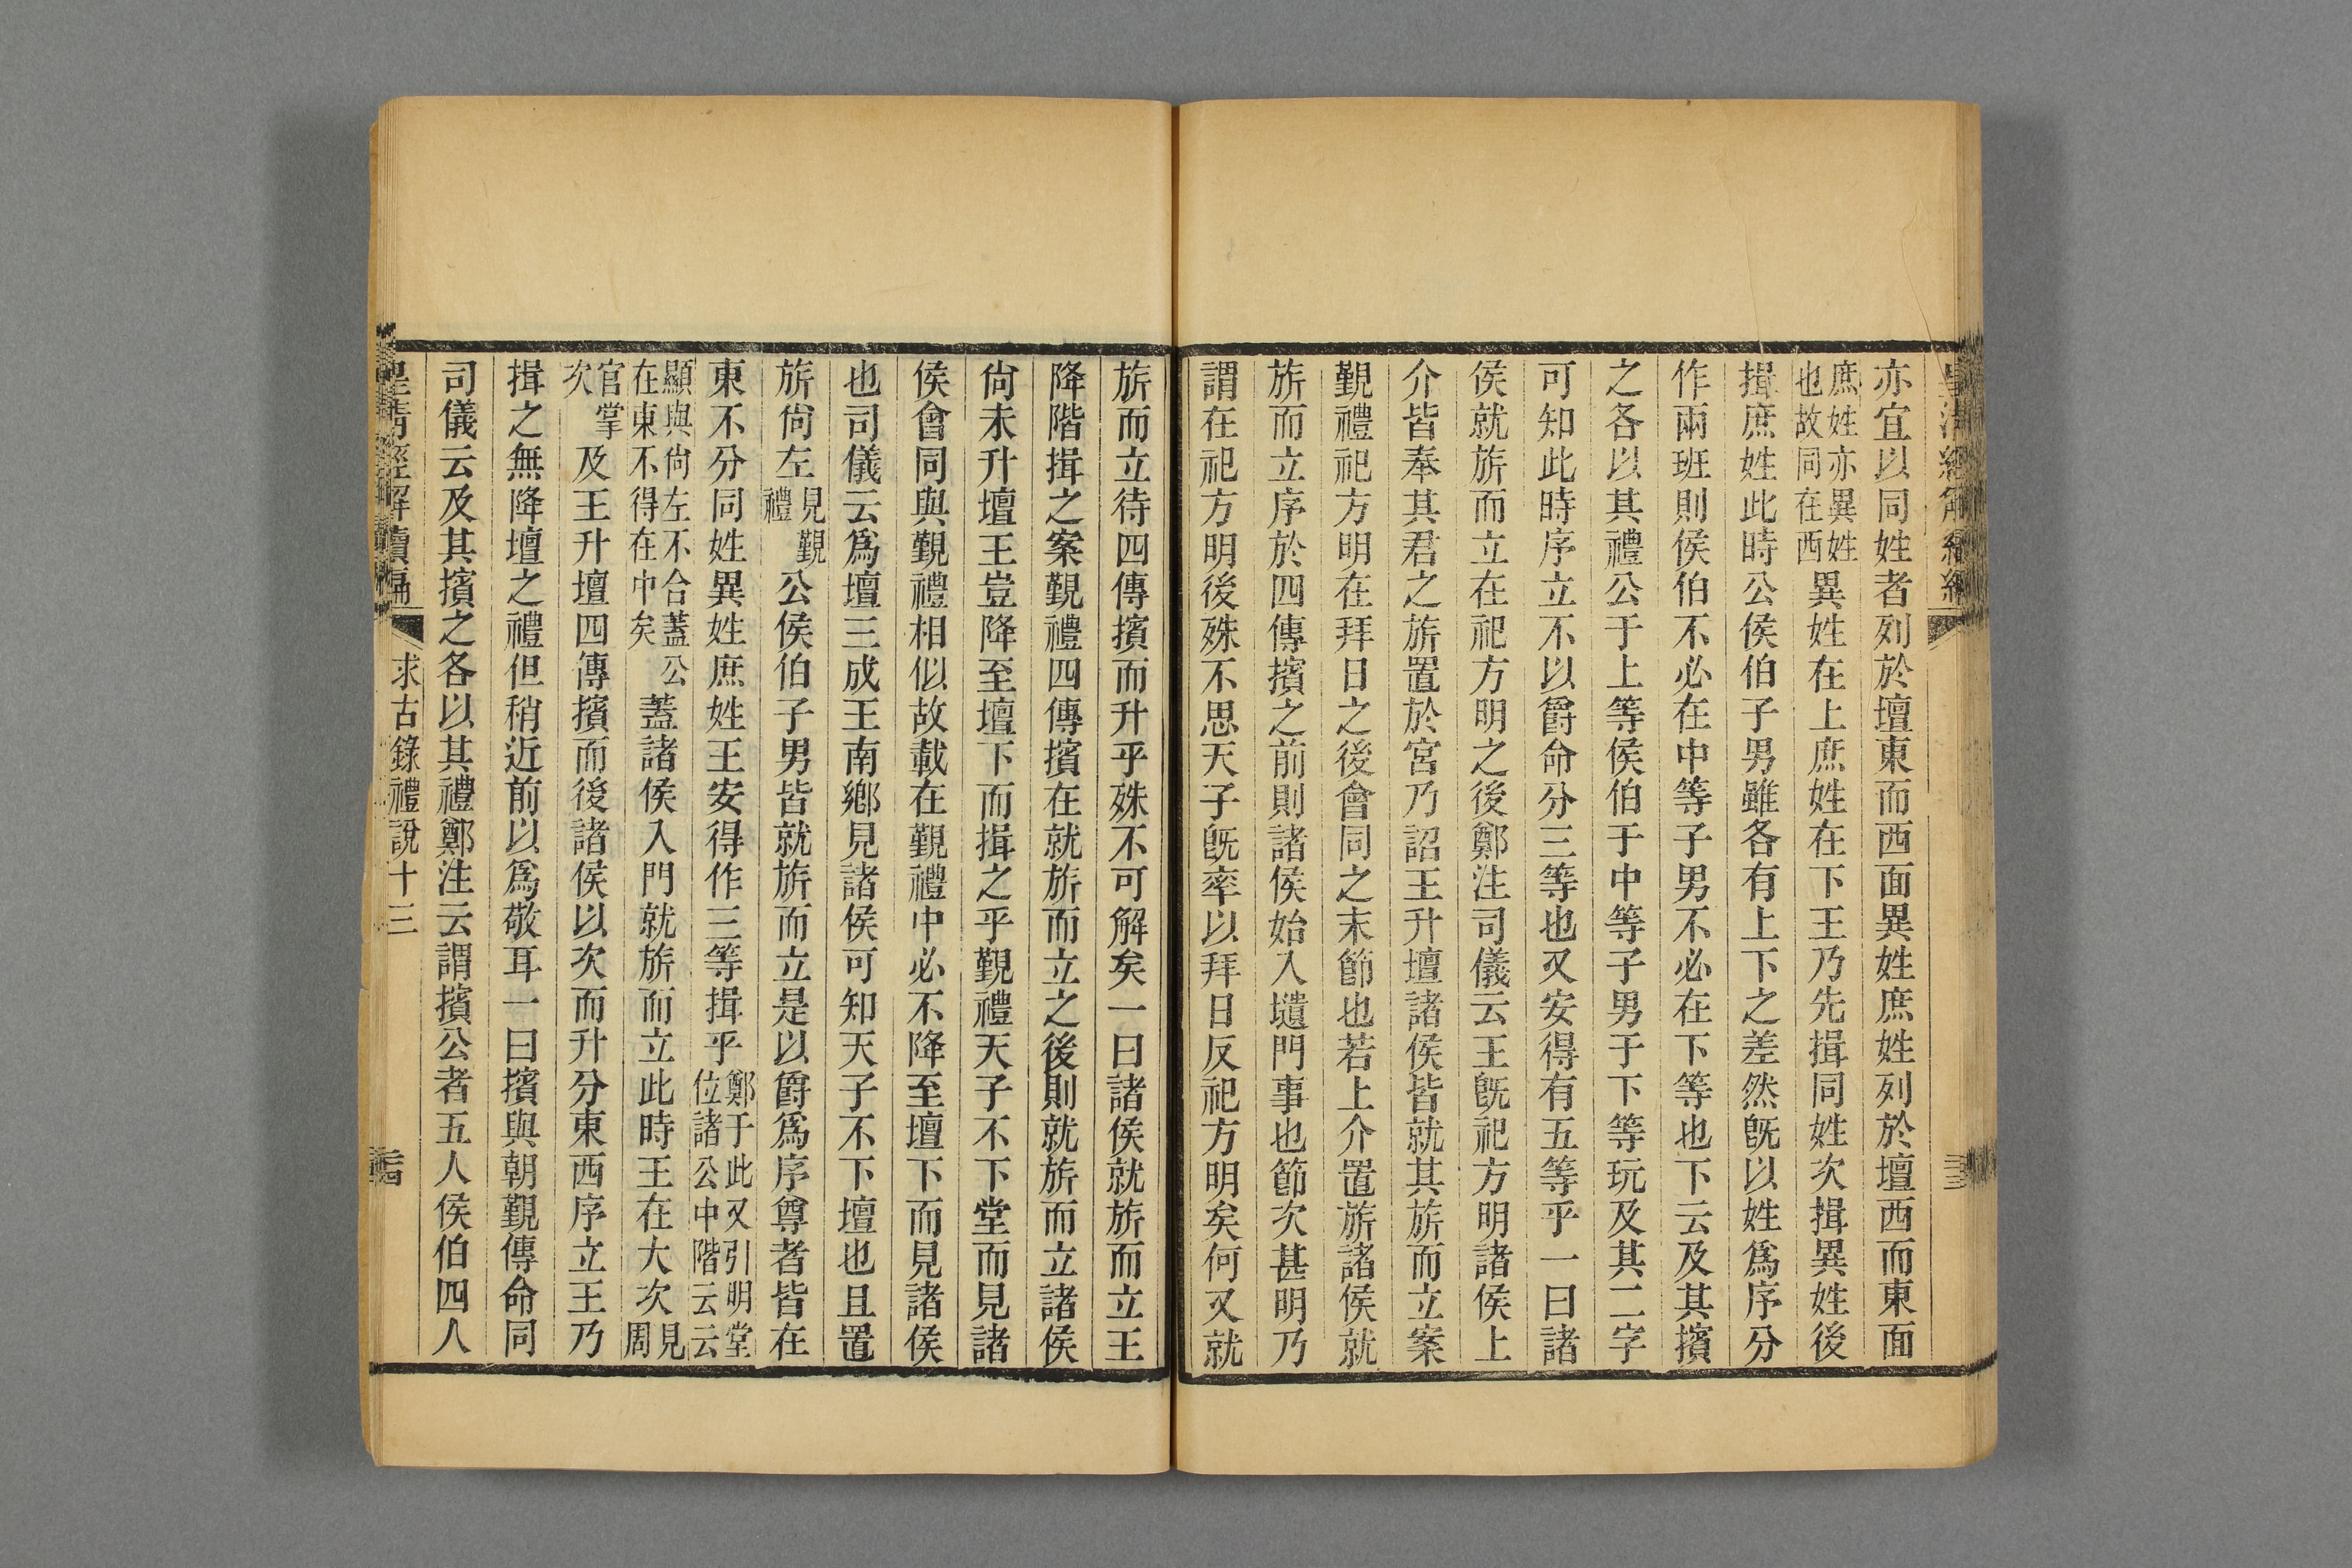 亦宜以同姓者列於壇東而西面異姓庶姓列於壇西而東面
庶姓亦異姓
也故同在西
異姓在上庶姓在下王乃先揖同姓次揖異姓後
揖庶姓此時公侯伯子男雖各有上下之差然旣以姓爲序分
作兩班則侯伯不必在中等子男不必在下等也下云及其擯
之各以其禮公于上等侯伯于中等子男于下等玩及其二字
可知此時序立不以爵命分三等也又安得有五等乎一曰諸
侯就旂而立在祀方明之後鄭注司儀云王旣祀方明諸侯上
介皆奉其君之旂置於宮乃詔王升壇諸侯皆就其旂而立案
覲禮祀方明在拜日之後會同之末節也若上介置旂諸侯就
旂而立序於四傳擯之前則諸侯始入壝門事也節次甚明乃
謂在祀方明後殊不思天子旣率以拜日反祀方明矣何又就
旂而立待四傳擯而升乎殊不可解矣一曰諸侯就旂而立王
降階揖之案覲禮四傳擯在就旂而立之後則就旂而立諸侯
尙未升壇王豈降至壇下而揖之乎覲禮天子不下堂而見諸
侯會同與覲禮相似故載在覲禮中必不降至壇下而見諸侯
也司儀云爲壇三成王南鄕見諸侯可知天子不下壇也且置
旂尙左
見覲
禮
公侯伯子男皆就旂而立是以爵爲序尊者皆在
東不分同姓異姓庶姓王安得作三等揖乎
鄭于此又引明堂
位諸公中階云云
顯與尙左不合蓋公
在東不得在中矣
蓋諸侯入門就旂而立此時王在大次
見
周
官掌
次
及王升壇四傳擯而後諸侯以次而升分東西序立王乃
揖之無降壇之禮但稍近前以爲敬耳一曰擯與朝覲傳命同
司儀云及其擯之各以其禮鄭注云謂擯公者五人侯伯四人
皇淸經解續編
求古錄禮說十三